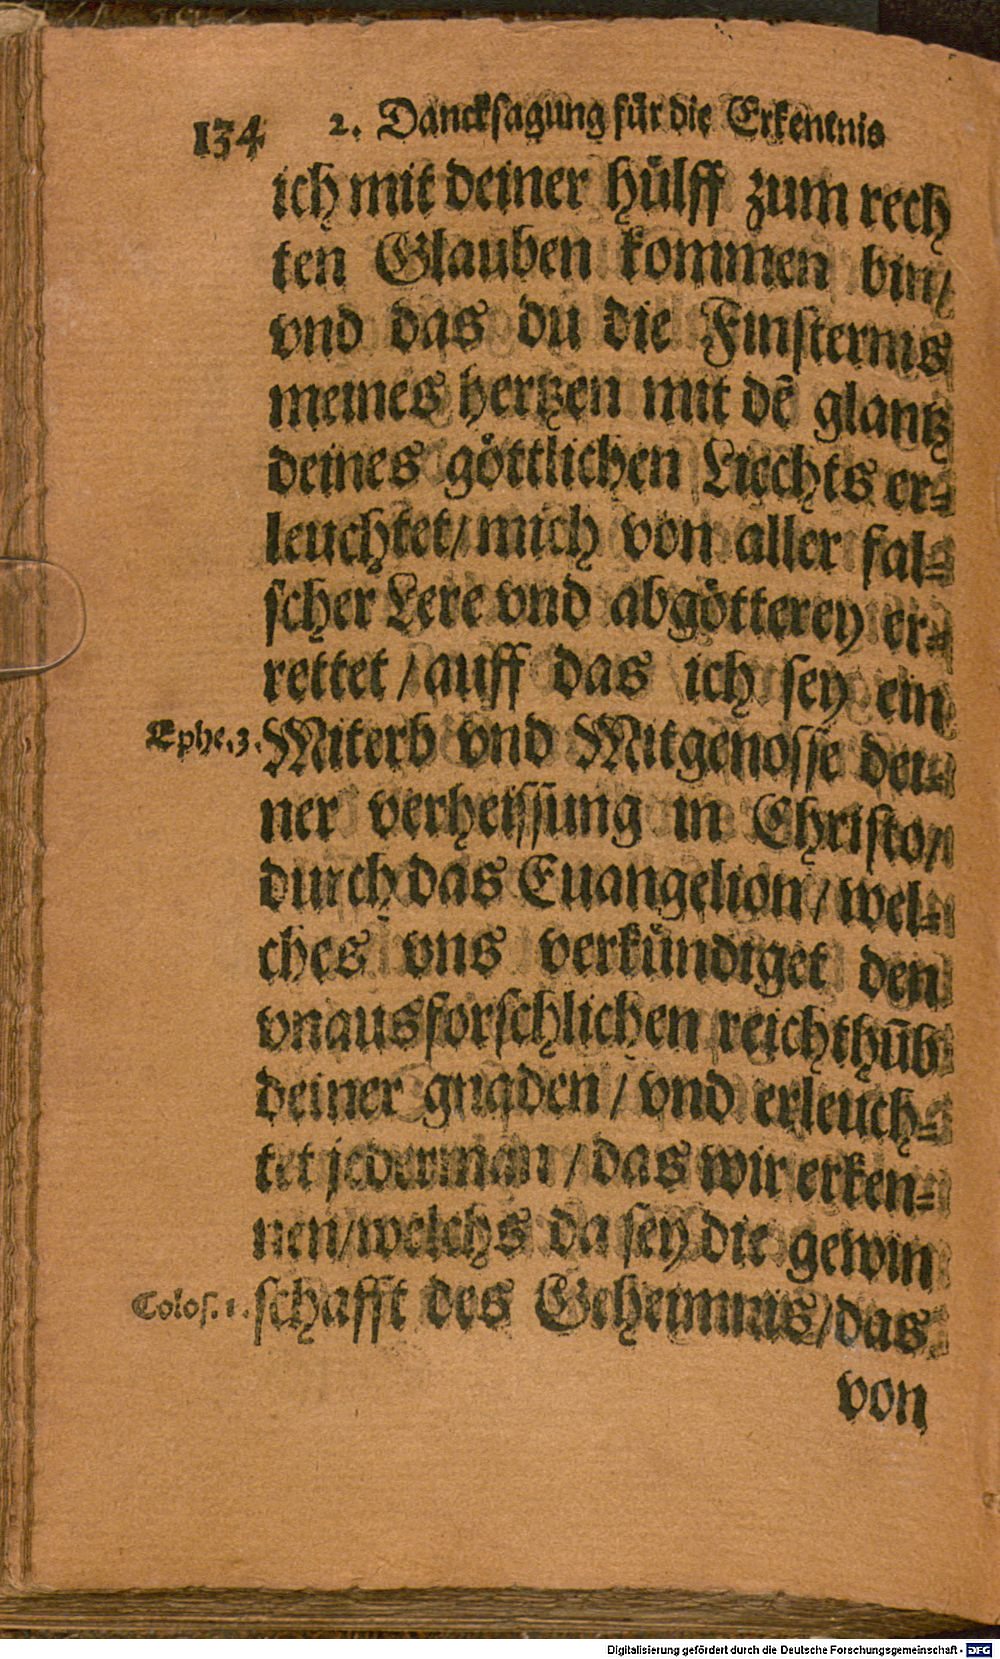 134 2. Dancksagung für die Erkentnis
ich mit deiner hülff zum rech
ten Glauben kommen bin/
vnd das du die Finsternis
meines hertzen mit dē glantz
deines göttlichen Liechts er=
leuchtet/mich von aller fal=
scher Lere vnd abgötterey er=
rettet/auff das ich sey ein
Ephe.3. Miterb vnd Mitgenosse dei=
ner verheissung in Christo/
durch das Euangelion/wel=
ches vns verkündiget den
vnausforschlichen reichthūb
deiner gnaden/vnd erleuch=
tet jederman/das wir erken=
nen/welchs da sey die gemin
Colos.1. schafft des Geheimnis/das
von
Digitalisierung gefördert durch die Deutsche Forschungsgemeinschaft - DFG